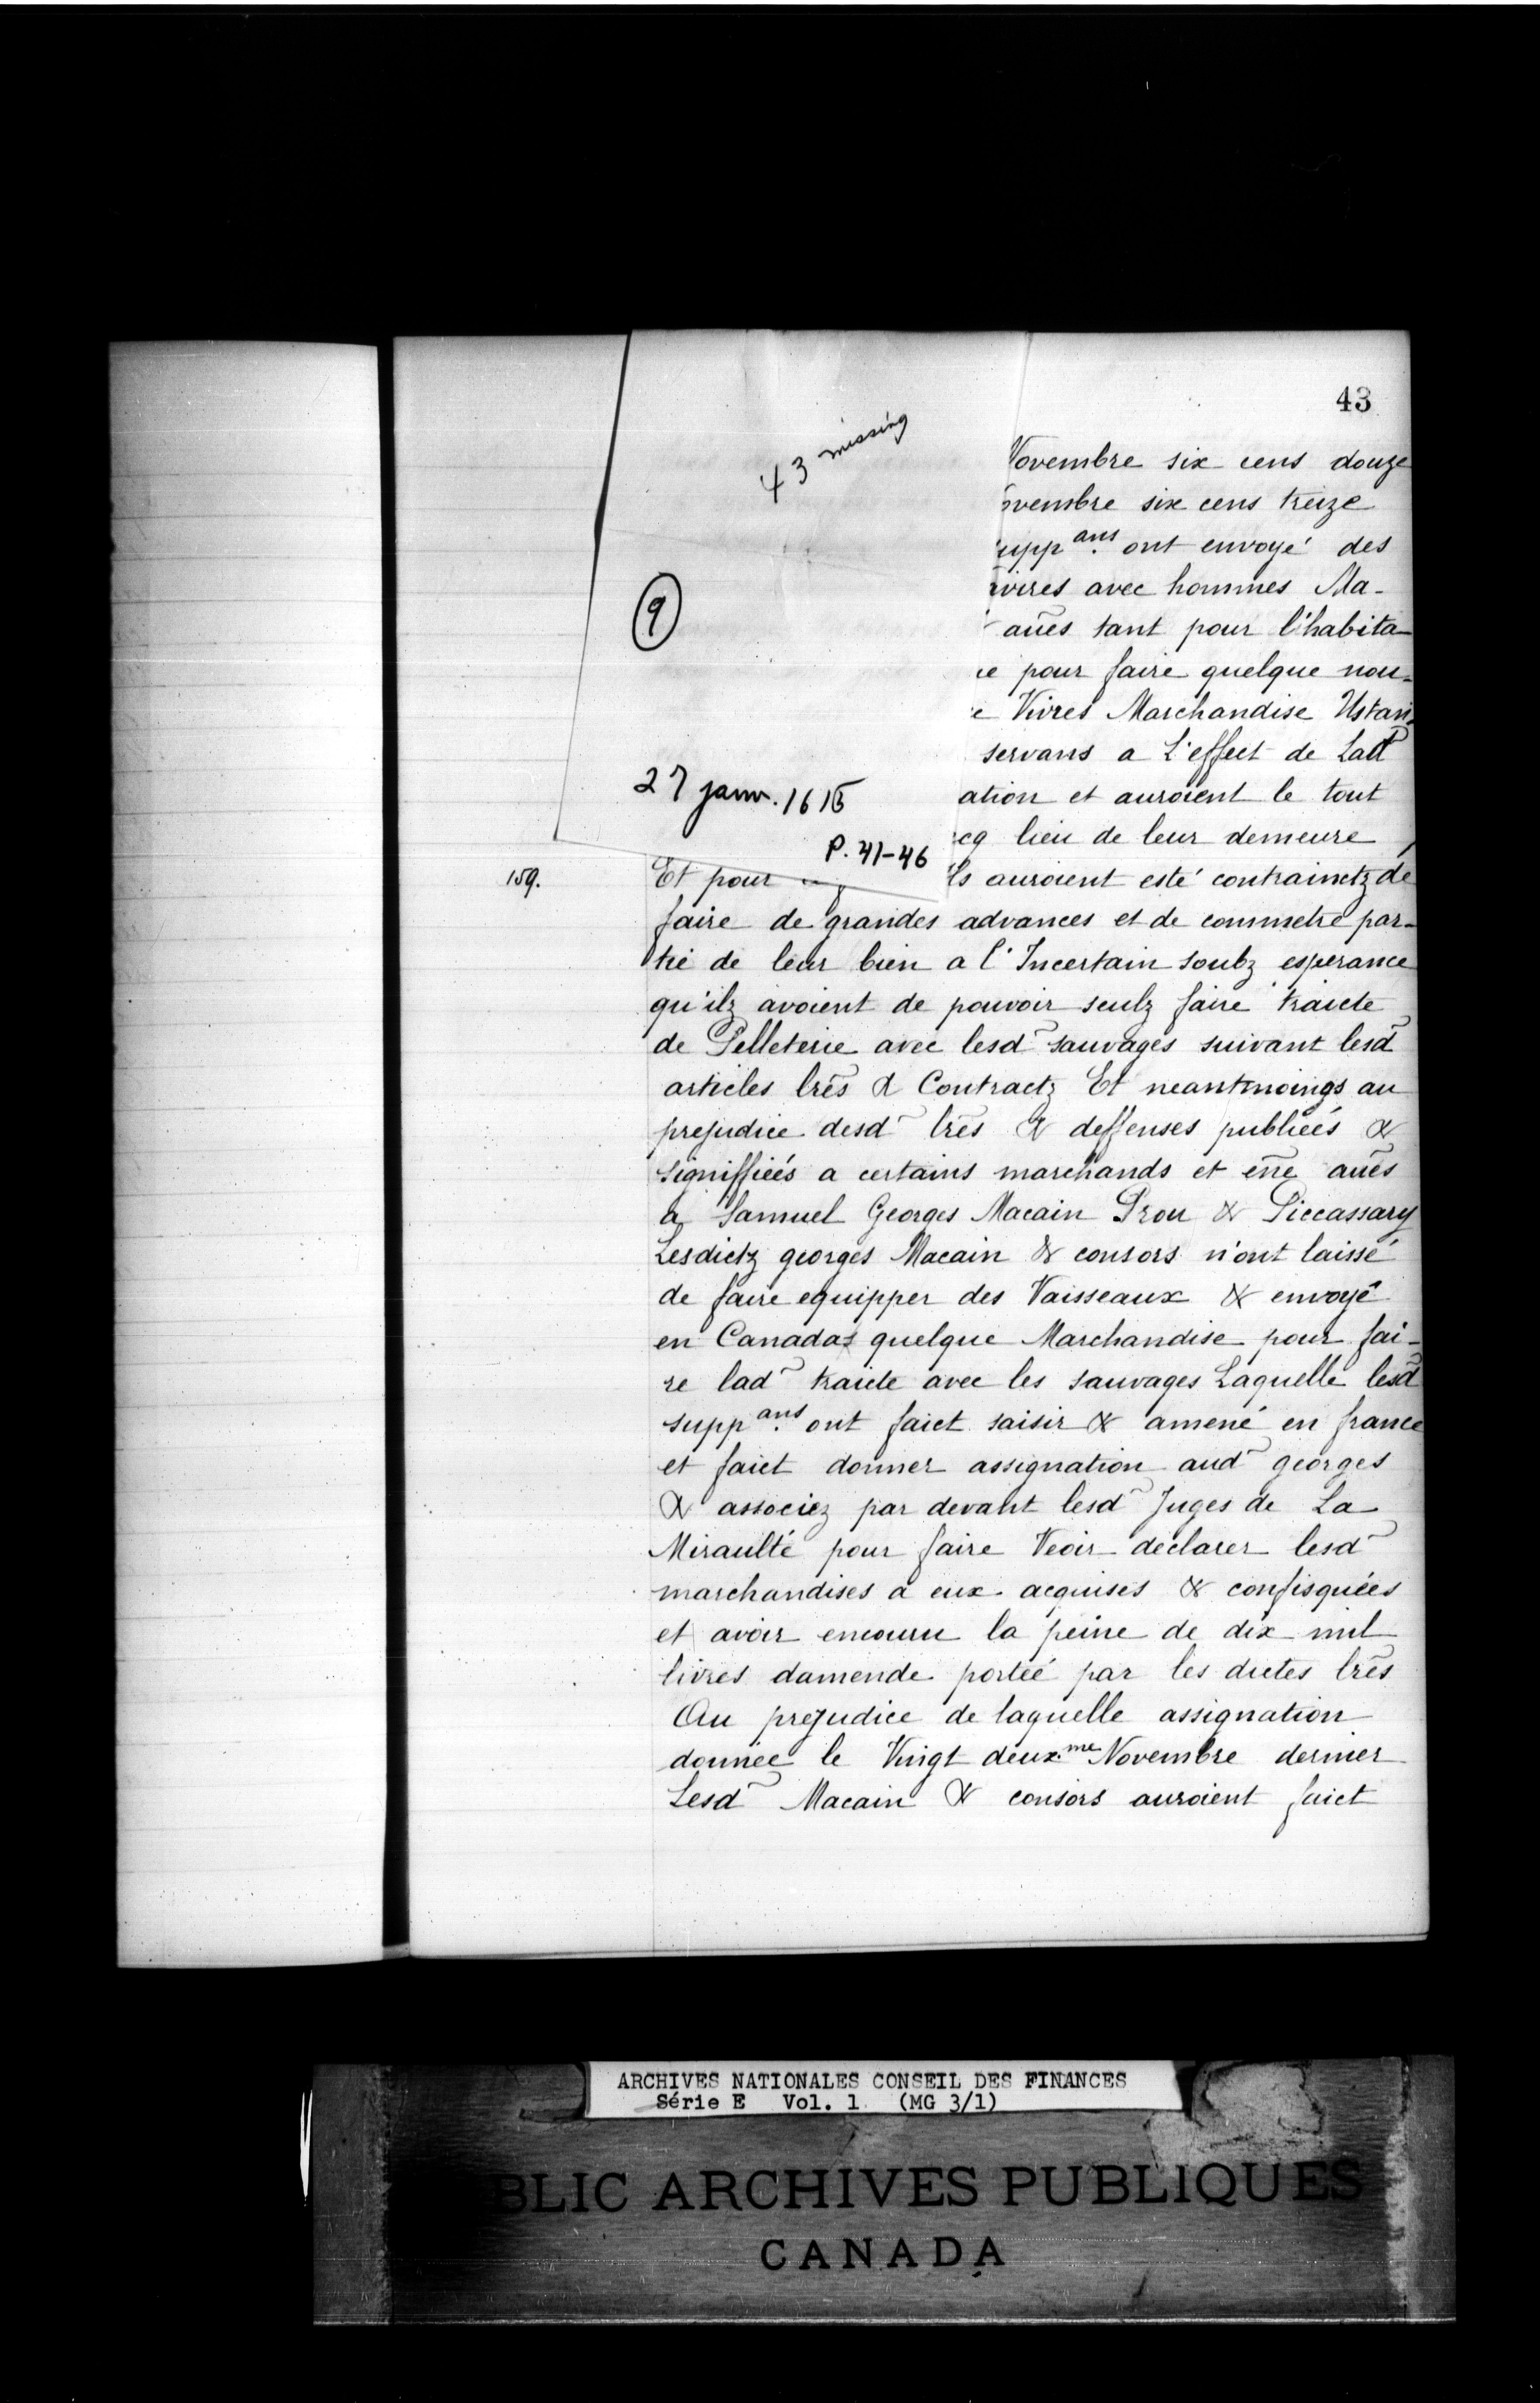 43
43 missing
9
27 janv. 1615
P. 41-46
ovembre six cens douze
ovembre six cens treize
upp ans. ont envoyé des
vires avec hommes Ma-
aũes tant pour l'habita-
e pour faire quelque nou-
e Vivres Marchandise Ustan
servans a L'effect de Lad̃
ation et auroient le tout
cq lieu de leur demeure,
159.
Et pour ls auroient esté contrainctz de
faire de grandes advances et de commetre par-
tie de leur bien a l'Incertain soubz esperance
qu'ilz avoient de pouvoir seulz faire traicte
de Pelleterie avec lesd̃ sauvages suivant lesd̃
articles lrẽs & Contractz Et neantmoings au
prejudice desd̃ lrẽs & deffenses publiéés &
signiffiéés a certains marchands et eñe aũes
a Samuel Georges Macain Prou & Piccassary
Lesdictz georges Macain & consors n'ont laissé
de faire equipper des Vaisseaux & envoyé
en Canadas quelque Marchandise pour fai-
re lad̃ traicte avec les sauvages Laquelle lesd̃
supp ans. ont faict saisir & amené en france
et faict donner assignation aud̃ georges
& associez par devant lesd̃ Juges de La
Miraulté pour faire Veoir declarer lesd̃
marchandises a eux acquises & confisquées
et avoir encouru la peine de dix mil
livres damende portéé par les dictes lrẽs
Au prejudice de laquelle assignation
donnée le Vingt deux.me Novembre dernier
Lesd̃ Macain & consors auroient faict
ARCHIVES NATIONALES CONSEIL DES FINANCES
Série E Vol. 1 (MG 3/1)
BLIC ARCHIVES PUBLIQUES
CANADA